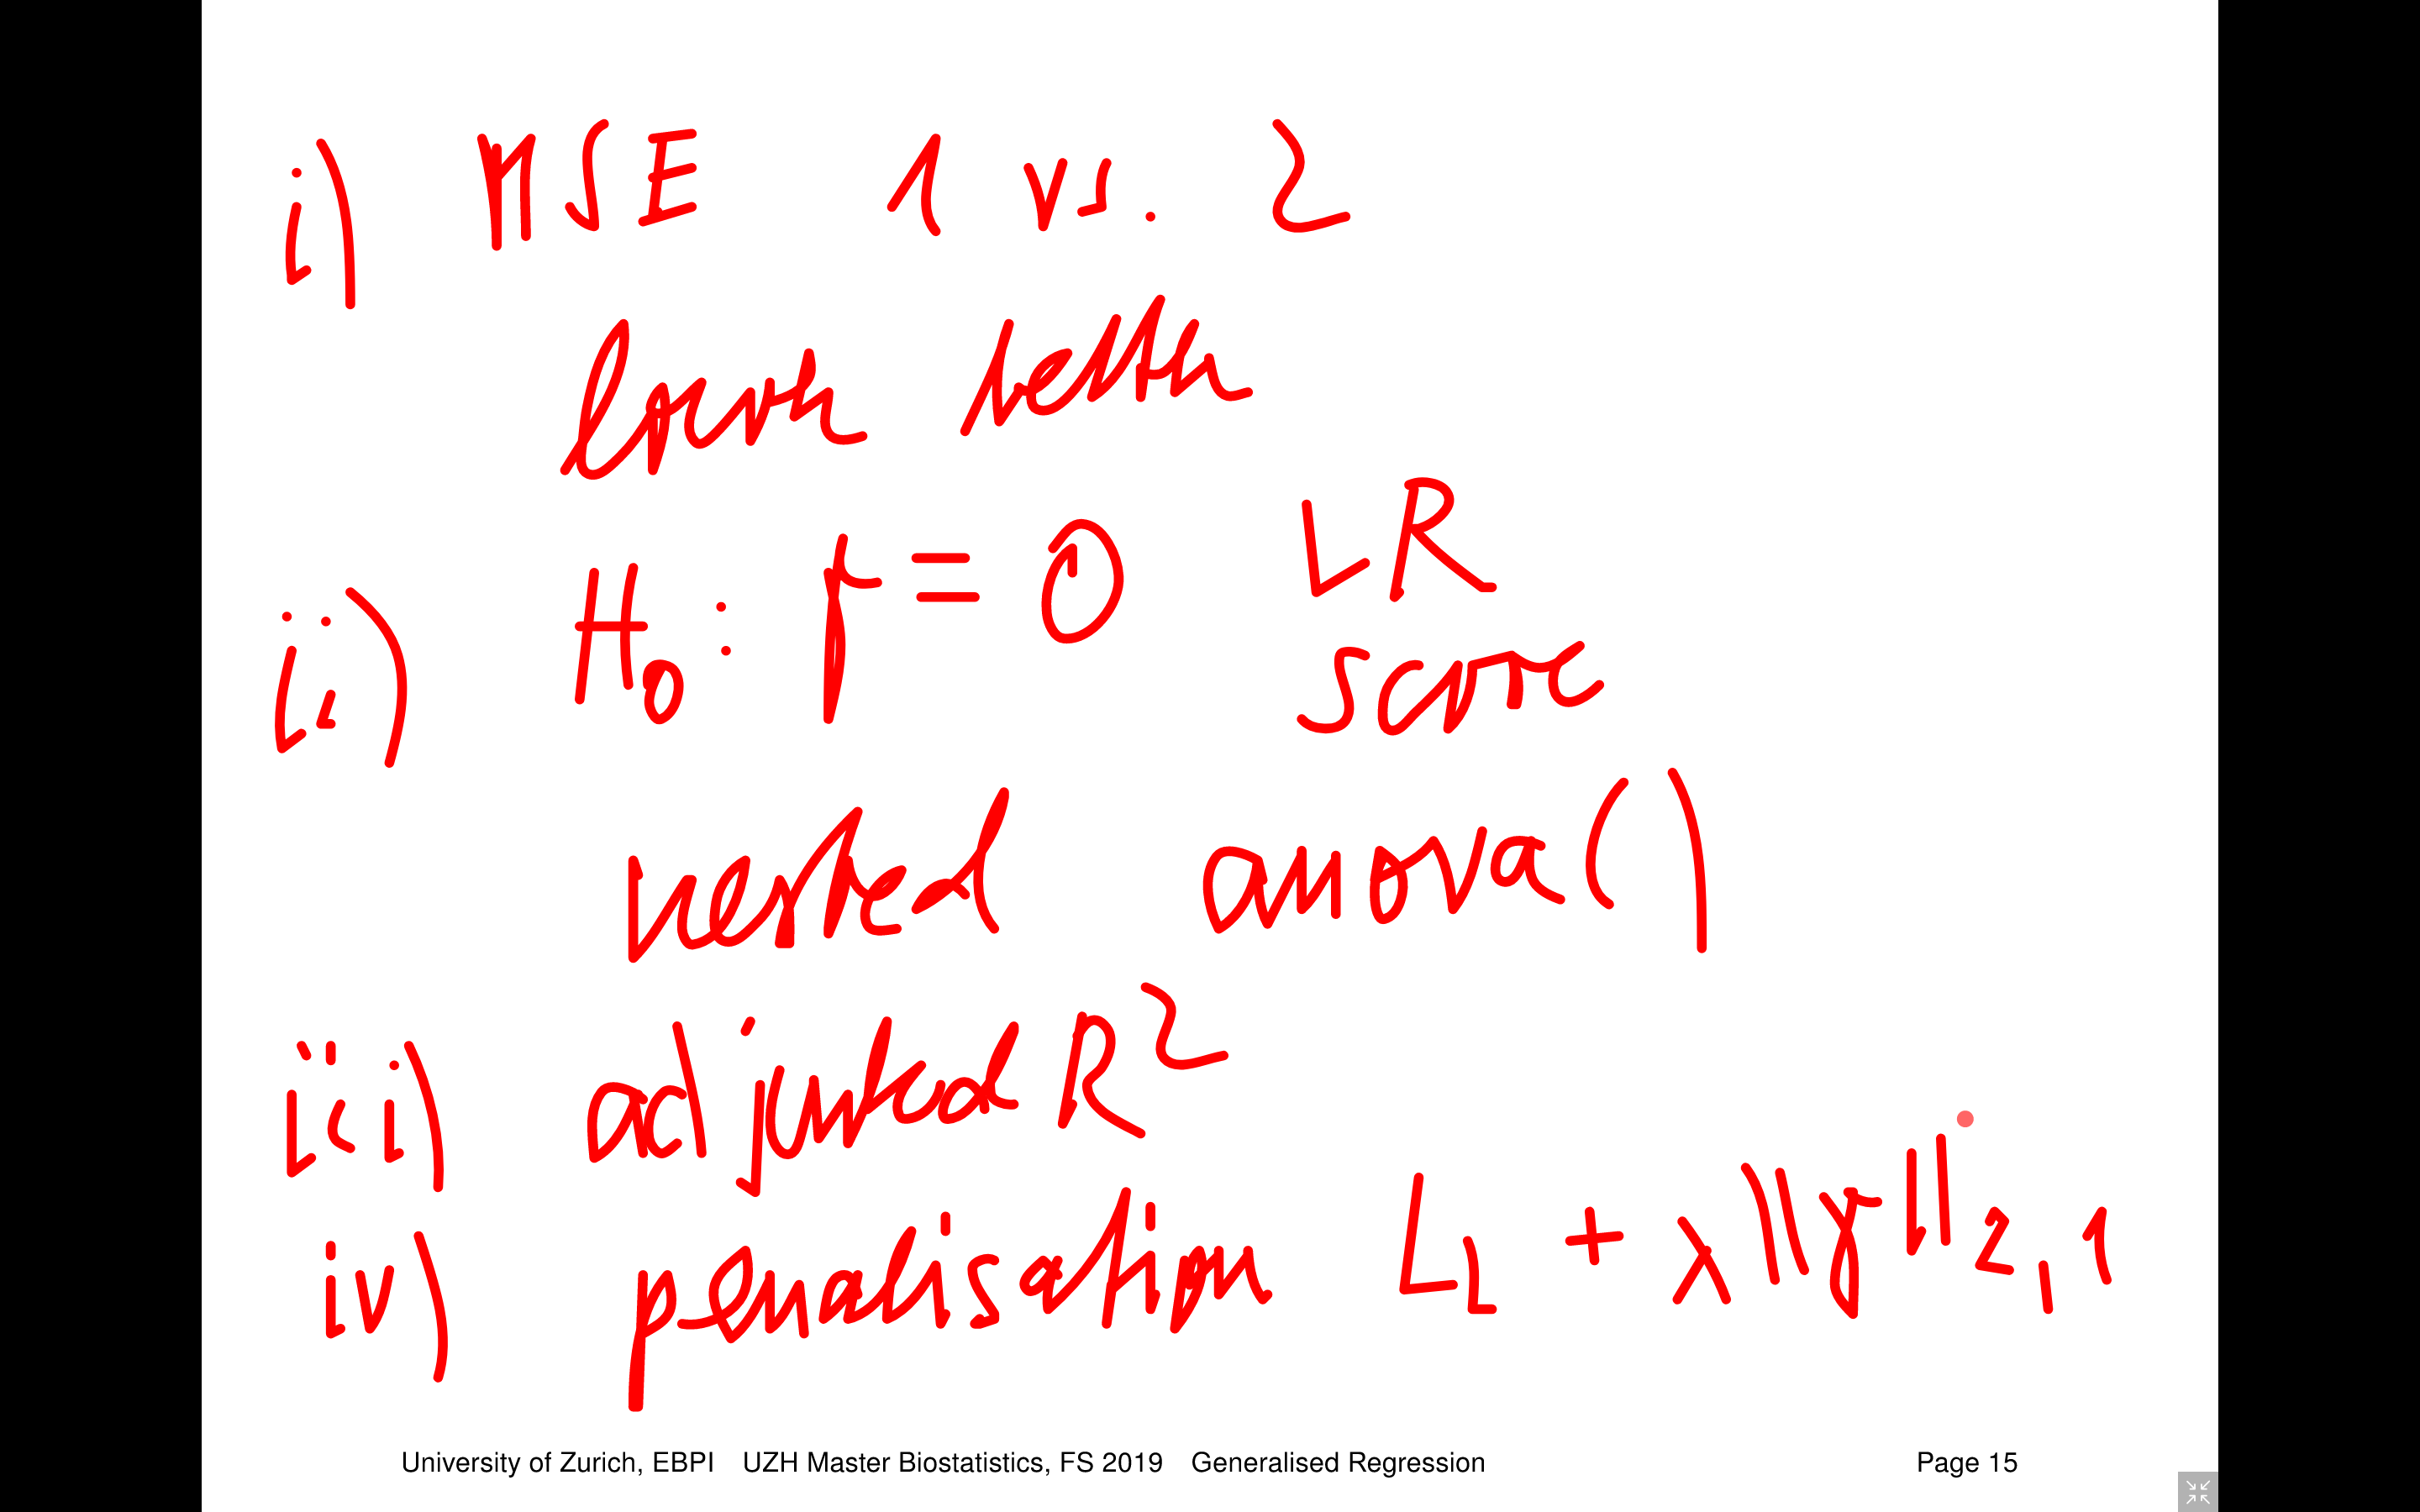 i) MSE 1 vs. 2
lower better
ii) H₀: γ = 0 LR
score
nested anova()
iii) adjusted R²
iv) penalisation L₁ + λ||γ||₂,₁
University of Zurich, EBPI UZH Master Biostatistics, FS 2019 Generalised Regression Page 15